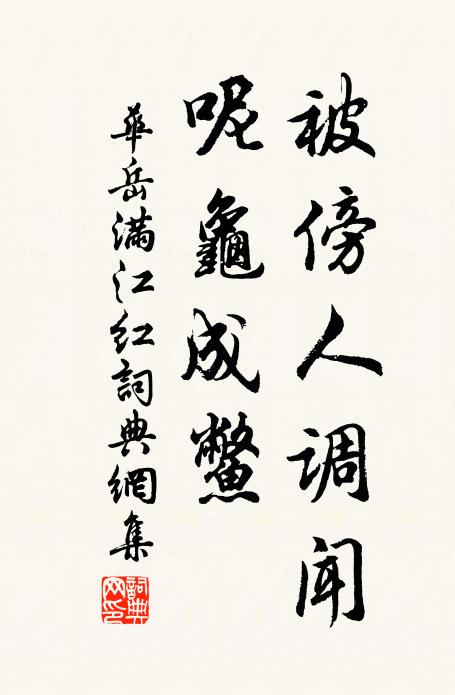 被傍人调闻
呢龜成鱉
華岳满江红詞典網集
詞典
网印